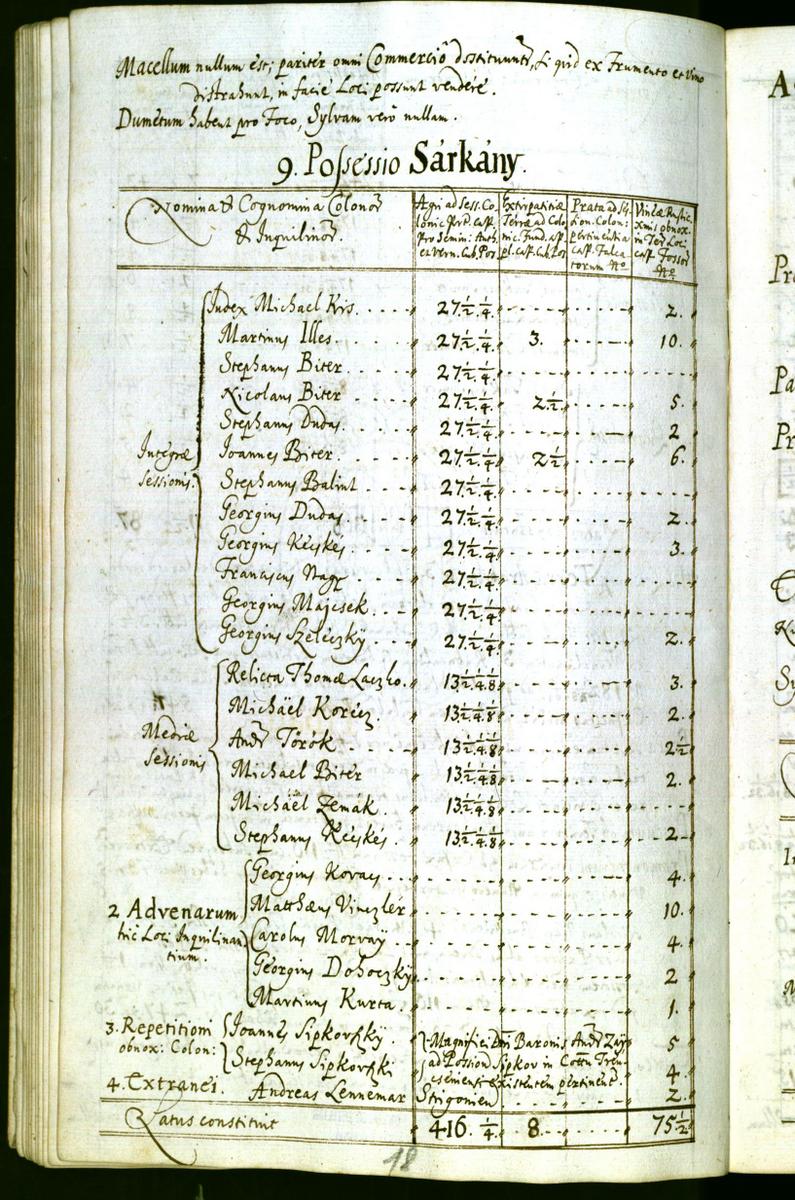 Macellum nullum est; pariter omni Commercio destituuntr, si quid ex Frumento et Vino
distrahunt, in facie Loci possunt vendere.
Dumetum habent pro Foco, Sylvam vero nullam.
9. Possessio Sárkány.
Nomina & Cognomina Colonor
& Inquilinor.
Agri ad Sess. Co
lonic. Pert. casp.
pro Semin: Auth.
et vern. Cub. Pos.
Extirpatitiæ
Terræ ad Colo
nic. Fund. sp.
pl. casp. Cub. Pos
Prata ad Se
sion. Colon:
pertinentia
casp. Falca
torum No
Vineæ Rustic.
obnox.
in Ter. Loci
casp. Fossor
No
Integræ
Sessionis.
Iudex Michael Kis. 27. 1/2. 1/4. 2.
Martinus Illes. 27. 1/2. 1/4. 3. 10.
Stephanus Biter. 27. 1/2. 1/4.
Nicolaus Biter 27. 1/2. 1/4. 2 1/2 5.
Stephanus Dudas. 27. 1/2. 1/4. 2
Ioannes Biter. 27. 1/2. 1/4. 2 1/2 6.
Stephanus Balint 27. 1/2. 1/4.
Georgius Dudas. 27. 1/2. 1/4. 2.
Georgius Kecskés. 27. 1/2. 1/4. 3.
Franciscus Nagy 27. 1/2. 1/4.
Georgius Majcsek. 27. 1/2. 1/4.
Georgius Szeleczky. 27. 1/2. 1/4. 2.
Mediæ
Sessionis
Relicta Thomæ Laczko. 13. 1/2. 1/4. 1/8. 3.
Michäel Korécz. 13. 1/2. 1/4. 1/8. 2.
Andr Török 13. 1/2. 1/4. 1/8. 2 1/2
Michael Biter 13. 1/2. 1/4. 1/8. 2.
Michäël Zemák. 13. 1/2. 1/4. 1/8.
Stephanus Kécskés. 13. 1/2. 1/4. 1/8. 2
2 Advenarum
hic Loci Inquilinan
tium.
Georgius Kovacs 4.
Matthæus Vinczlér 10.
Carolus Morvaÿ 4.
Georgius Dohoczky 2
Martinus Kurta. 1.
3. Repetitioni
obnox: Colon:
Ioannes Sipkovszky. 5
Stephanus Sipkovszki 4.
Magnifici Dni Baronis Andr Zaÿ
ad Possion Sipkov in Cottu Tren
csiniensi existentem pertinent.
4. Extranei. Andreas Lennemar Strigonien 2.
Latus constituit 416. 1/4 8. 75 1/2
18